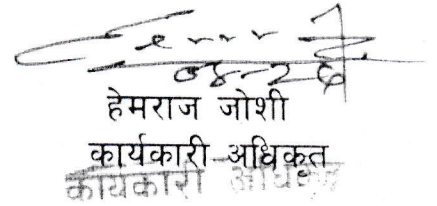 हेमराज जोशी
कार्यकारी अधिकृत
कार्यकारी अधिकृत